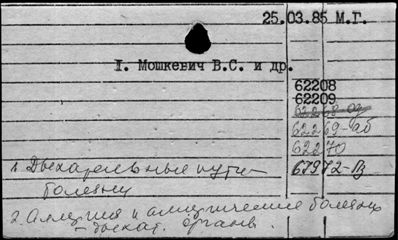 25.03.85 М.Г.
I. Мошкевич В.С. и др.
62208
62209
62269-аб
62270
67972-В
1. Дыхательные пути-
болезни
2. Аллергия и аллергические болезни
- дыхат. органов.